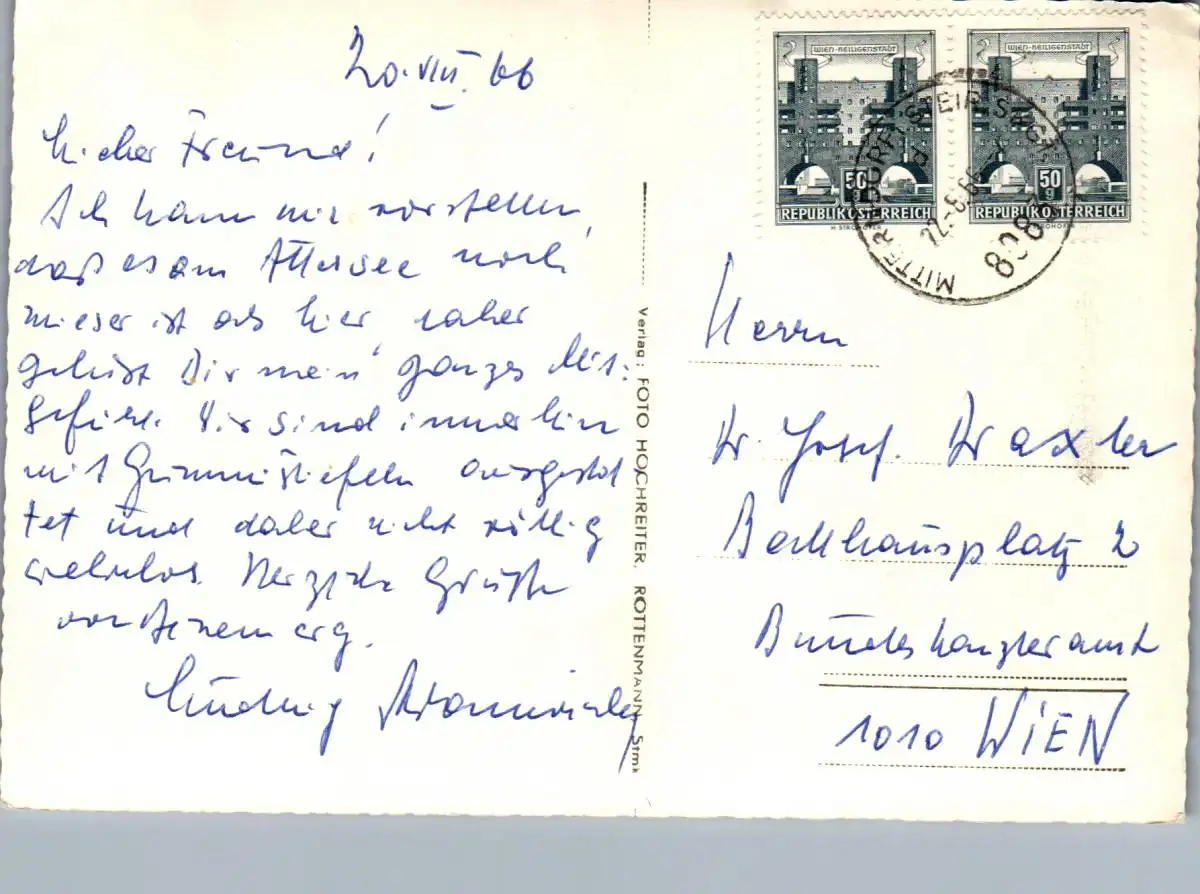 20.VIII.66
Lieber Freund!
Ich kann mir vorstellen,
daß es am Attersee noch
mieser ist als hier, daher
gehört Dir mein ganzes Mit-
gefühl. Wir sind immerhin
mit Gummistiefeln ausgestat
tet und daher nicht völlig
wehrlos. Herzliche Grüße
von Deinem erg.
Ludwig
Verlag: FOTO HOCHREITER, ROTTENMANN, Stmk
WIEN-HEILIGENSTADT
50
g
REPUBLIK ÖSTERREICH
H. STROHOFER
WIEN-HEILIGENSTADT
50
g
REPUBLIK ÖSTERREICH
H. STROHOFER
MITTERNDORF, STEIR. SALZKGT.
22.-8.66
8083
Herrn
Dr. Josef
Ballhausplatz 2
Bundeskanzleramt
1010 WIEN